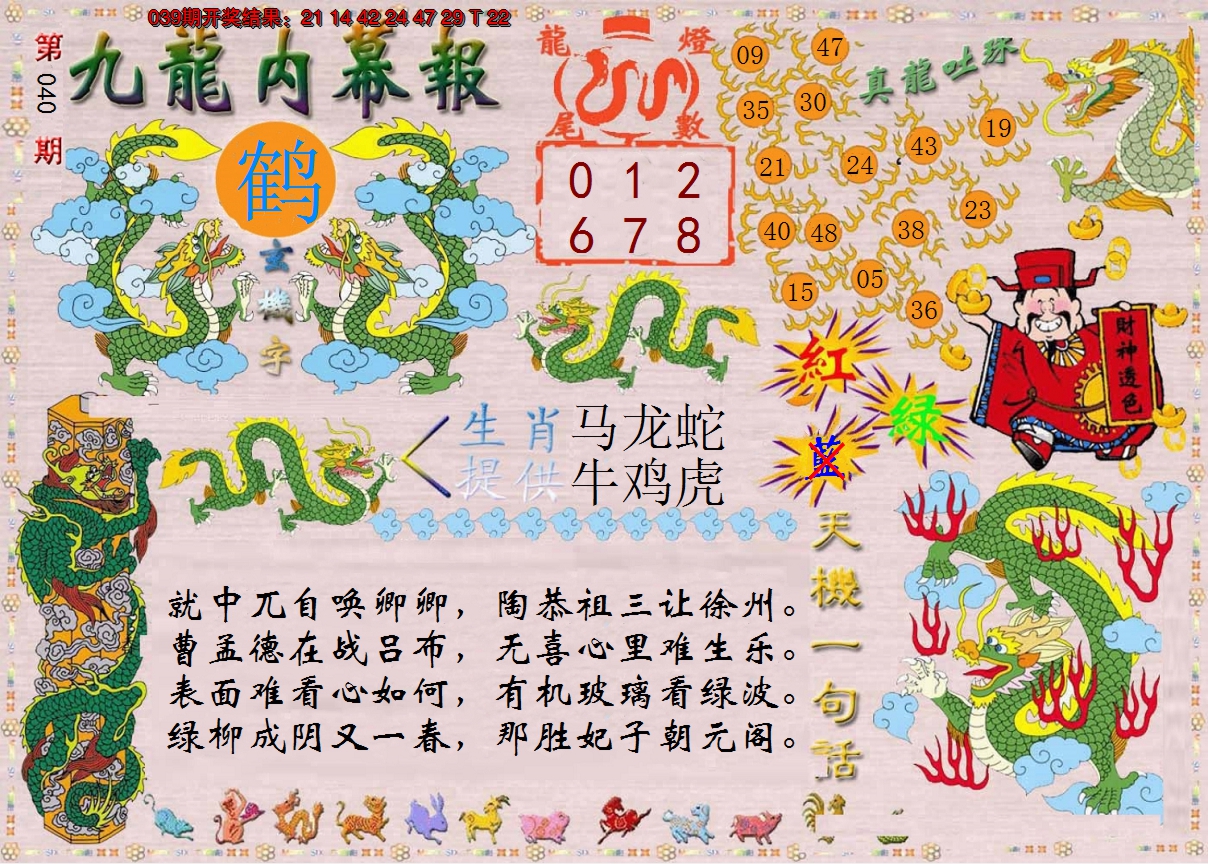 039期开奖结果：21 14 42 24 47 29 T 22
第
040
期
九龍内幕報
鹤
玄
機
字
龍 燈
尾 數
0 1 2
6 7 8
真龍吐珠
09
47
35
30
43
19
21
24
23
40
48
38
15
05
36
紅
綠
藍
財神透色
生肖 马龙蛇
提供 牛鸡虎
就中兀自唤卿卿，陶恭祖三让徐州。
曹孟德在战吕布，无喜心里难生乐。
表面难看心如何，有机玻璃看绿波。
绿柳成阴又一春，那胜妃子朝元阁。
天機一句話